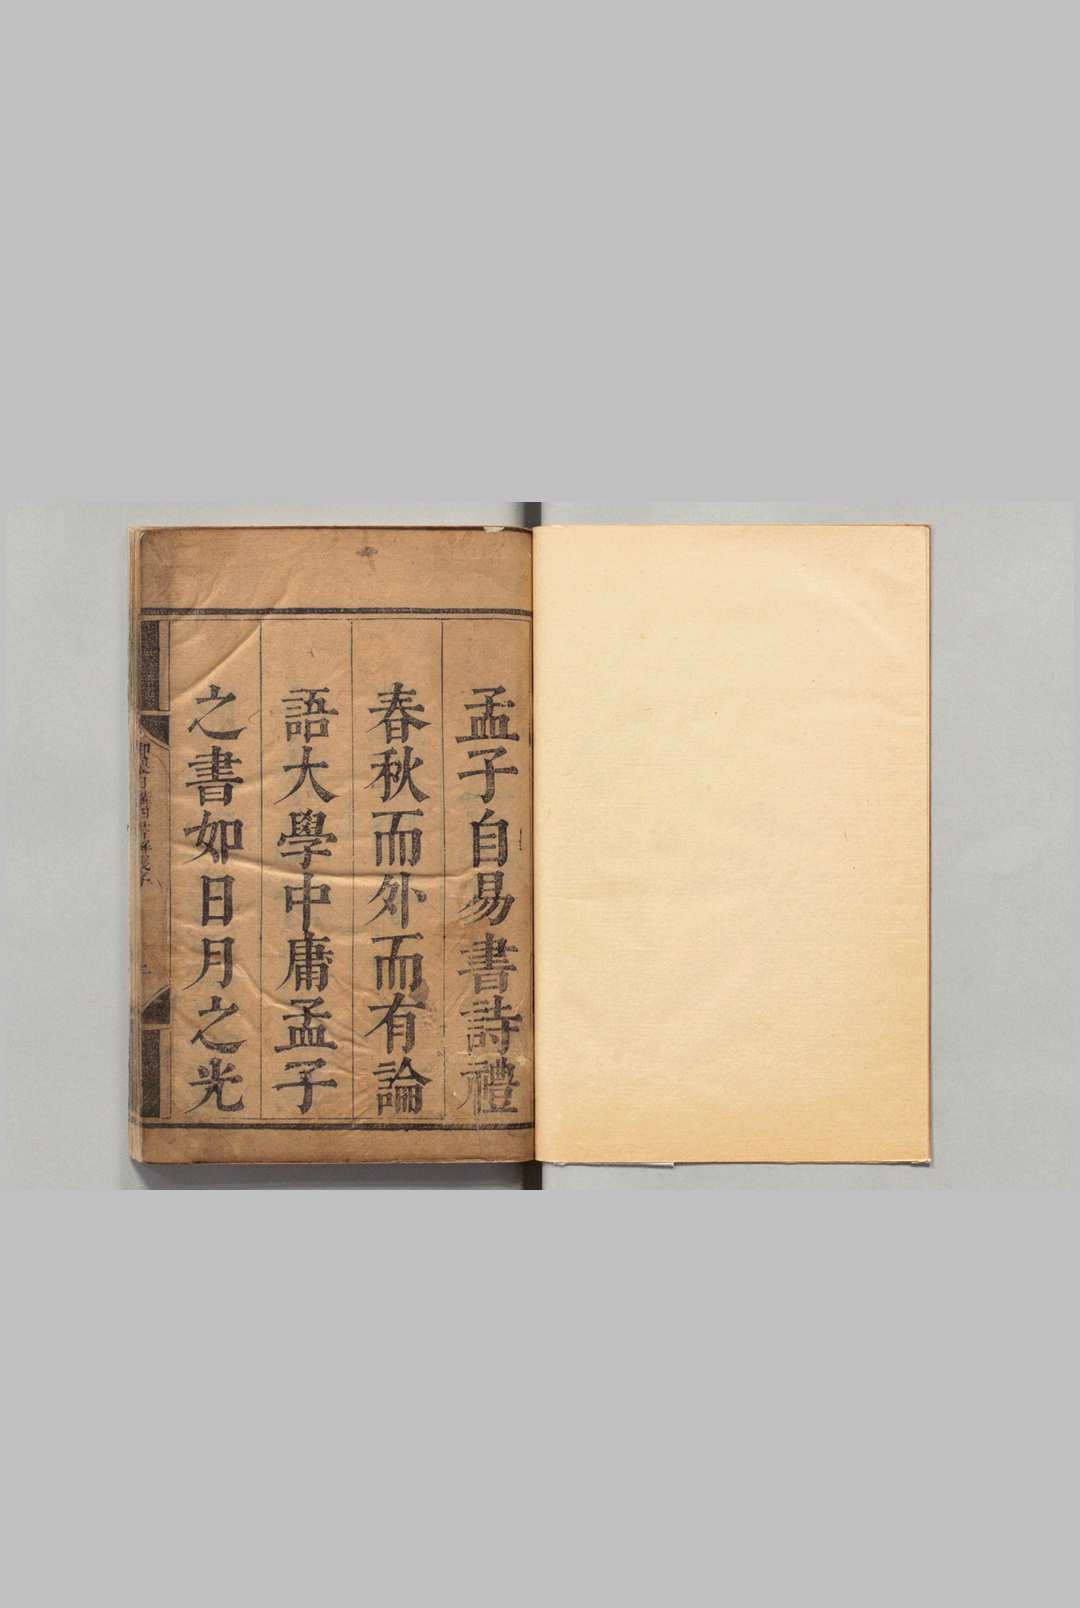 孟子自易書詩禮
春秋而外而有論
語大學中庸孟子
之書如日月之光